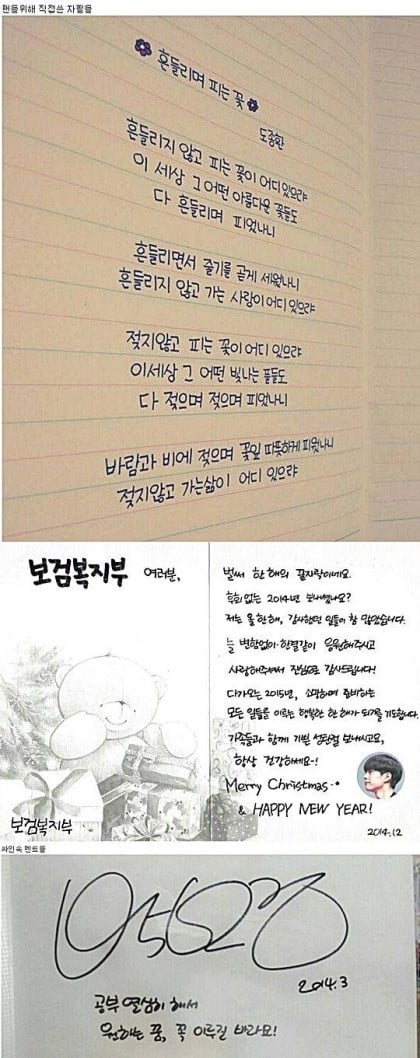 팬들위해 직접쓴 자필들
흔들리며 피는 꽃
도종환
흔들리지 않고 피는 꽃이 어디 있으랴
이 세상 그 어떤 아름다운 꽃들도
다 흔들리며 피었나니
흔들리면서 줄기를 곧게 세웠나니
흔들리지 않고 가는 사랑이 어디 있으랴
젖지않고 피는 꽃이 어디 있으랴
이세상 그 어떤 빛나는 꽃들도
다 젖으며 젖으며 피었나니
바람과 비에 젖으며 꽃잎 따뜻하게 피웠나니
젖지않고 가는삶이 어디 있으랴
보검복지부 여러분,
벌써 한 해의 끝자락이네요.
후회 없는 2014년 보내셨나요?
저는 올 한해, 감사했던 일들이 참 많았습니다.
늘 변함없이 한결같이 응원해주시고
사랑해주셔서 진심으로 감사드립니다!
다가오는 2015년, 소망하며 준비하는
모든 일들을 이루는 행복한 한 해가 되기를 기도합니다.
가족들과 함께 기쁜 성탄절 보내시고요,
항상 건강하세요~!
Merry Christmas
& HAPPY NEW YEAR!
2014.12
보검복지부
싸인속 멘트들
2014.3
공부 열심히 해서
원하는 꿈, 꼭 이루길 바라요!